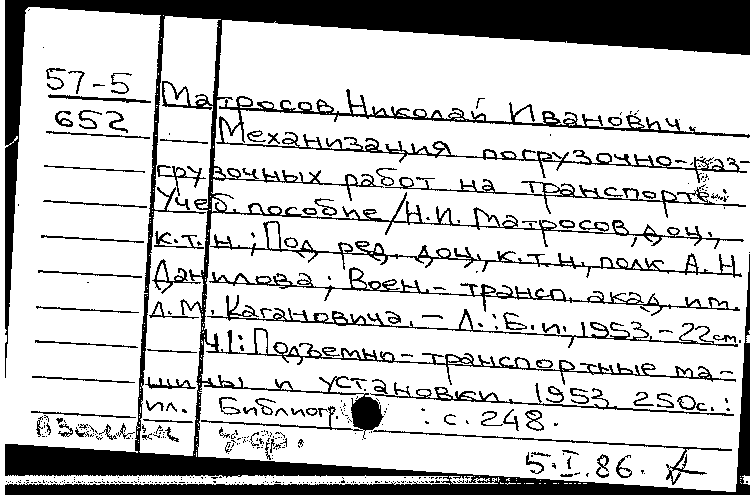 57-5 Матросов, Николай Иванович.
652 Механизация погрузочно-раз-
грузочных работ на транспорте:
Учеб. пособие / Н.И. Матросов, доц.,
к.т.н.; Под ред. доц., к.т.н., полк А.Н
Данилова; Воен.-трансп. акад. им.
Л.М. Кагановича. - Л.: Б.и., 1953. - 22см.
Ч.1: Подъемно-транспортные ма-
шины и установки. 1953. 250с.:
ил. Библиогр. : с. 248.
взамен
5.I.86.